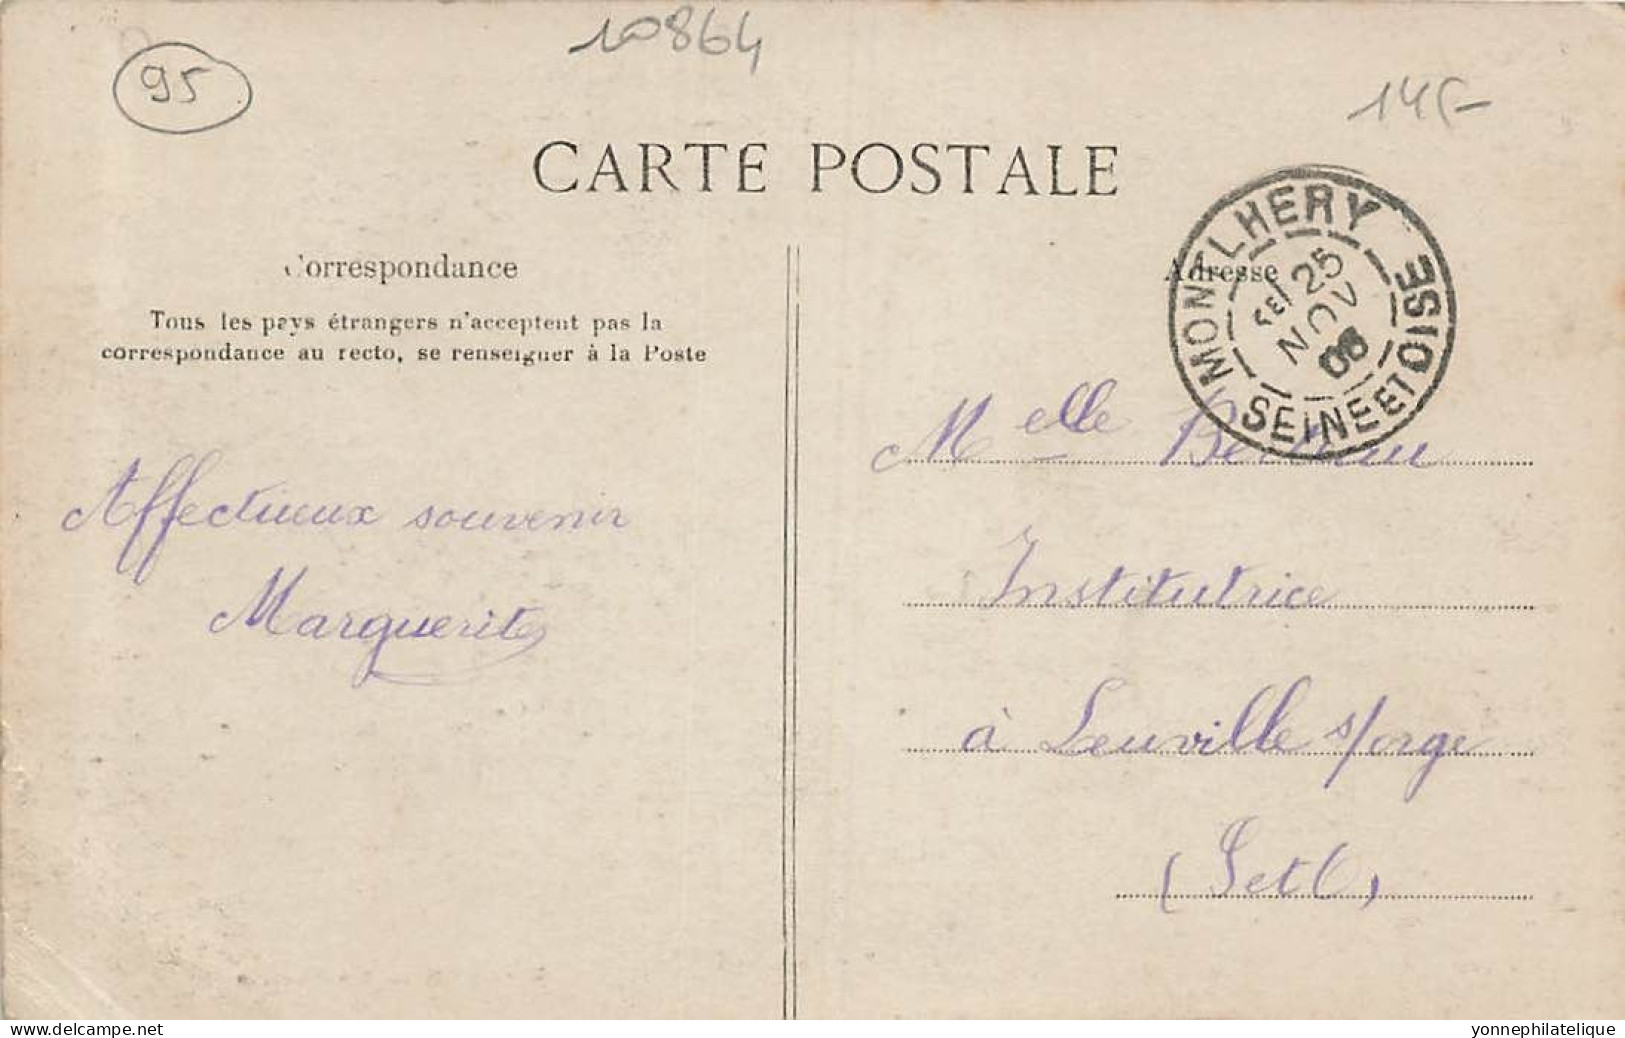 95
10864
14(-
CARTE POSTALE
Correspondance
Tous les pays étrangers n'acceptent pas la
correspondance au recto, se renseigner à la Poste
Adresse
MONTLHERY
25
NOV
SEINE ET OISE
Affectueux souvenir
Marguerite
Melle
Institutrice
à Leuville s/orge
(S et O)
delcampe.net
yonnephilatelique